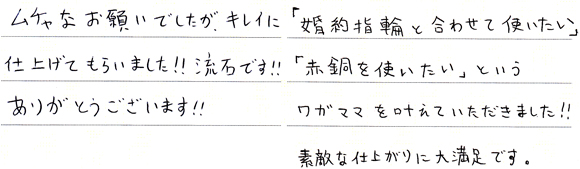 ムチャなお願いでしたが、キレイに
仕上げてもらいました!!流石です!!
ありがとうございます!!
「婚約指輪と合わせて使いたい」
「赤銅を使いたい」という
ワガママを叶えていただきました!!
素敵な仕上がりに大満足です。